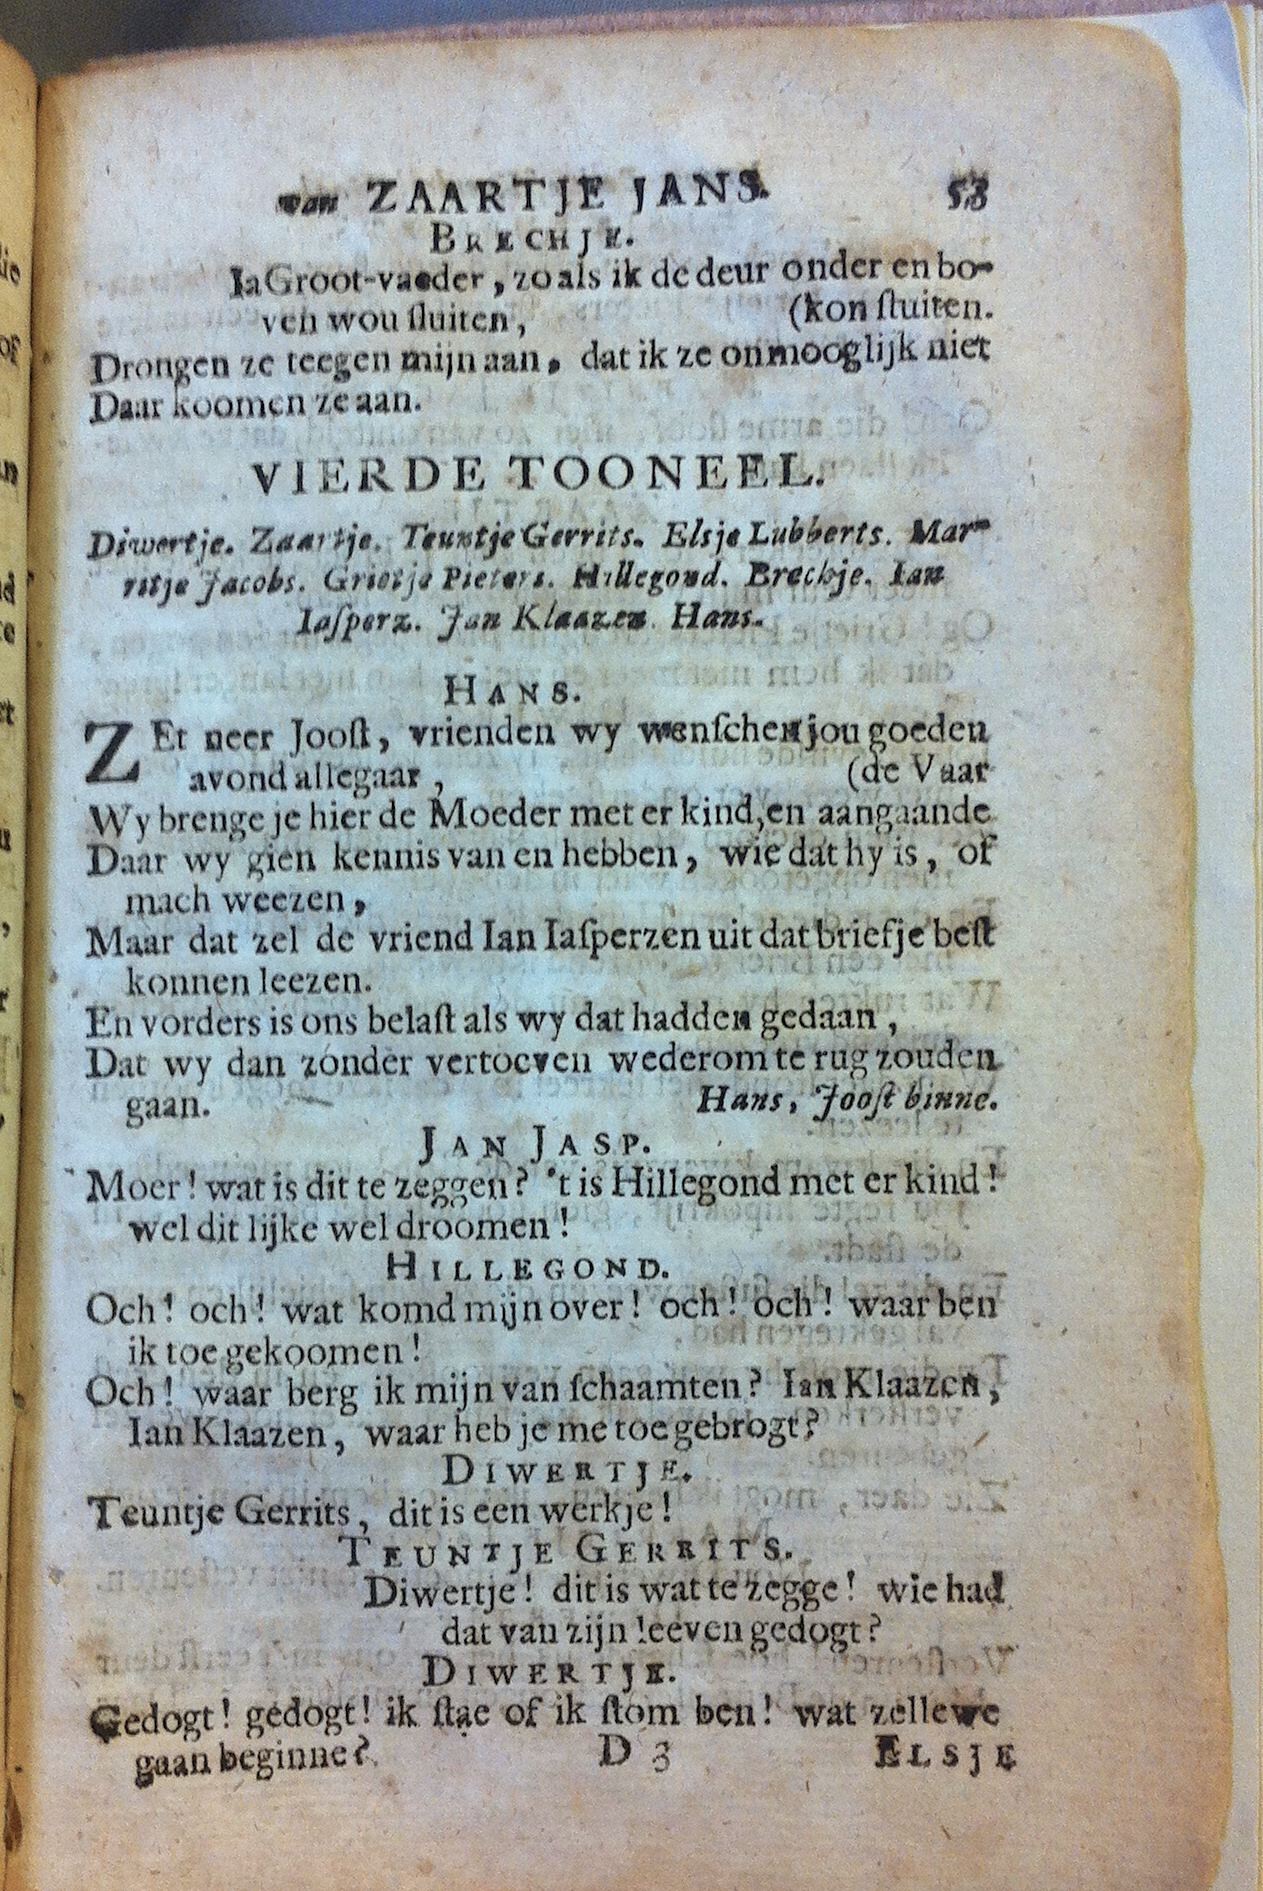 van ZAARTJE JANS. 53
BRECHJE.
Ia Groot-vaeder, zo als ik de deur onder en bo-
ven wou sluiten, (kon sluiten.
Drongen ze teegen mijn aan, dat ik ze onmooglijk niet
Daar koomen ze aan.
VIERDE TOONEEL.
Diwertje. Zaartje. Teuntje Gerrits. Elsje Lubberts. Mar-
ritje Jacobs. Grietje Pieters. Hillegond. Brechje. Ian
Iaſperz. Jan Klaazen. Hans.
HANS.
ZEt neer Jooſt, vrienden wy wenſchen jou goeden
avond allegaar, (de Vaar
Wy brenge je hier de Moeder met er kind, en aangaande
Daar wy gien kennis van en hebben, wie dat hy is, of
mach weezen,
Maar dat zel de vriend Ian Iaſperzen uit dat briefje beſt
konnen leezen.
En vorders is ons belaſt als wy dat hadden gedaan,
Dat wy dan zonder vertoeven wederom te rug zouden
gaan. Hans, Jooſt binne.
JAN JASP.
Moer! wat is dit te zeggen? 't is Hillegond met er kind!
wel dit lijke wel droomen!
HILLEGOND.
Och! och! wat komd mijn over! och! och! waar ben
ik toe gekoomen!
Och! waar berg ik mijn van ſchaamten? Ian Klaazen,
Ian Klaazen, waar heb je me toe gebrogt?
DIWERTJE.
Teuntje Gerrits, dit is een werkje!
TEUNTJE GERRITS.
Diwertje! dit is wat te zegge! wie had
dat van zijn leeven gedogt?
DIWERTJE.
Gedogt! gedogt! ik ſtae of ik ſtom ben! wat zellewe
gaan beginne? D 3 ELSJE